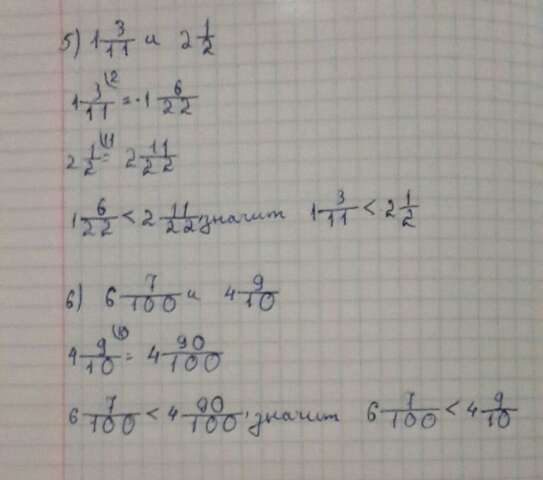 5) 1 3/11 и 2 1/2
1 3/11 \2 = 1 6/22
2 1/2 \11 = 2 11/22
1 6/22 < 2 11/22, значит 1 3/11 < 2 1/2
6) 6 7/100 и 4 9/10
4 9/10 \10 = 4 90/100
6 7/100 < 4 90/100, значит 6 7/100 < 4 9/10